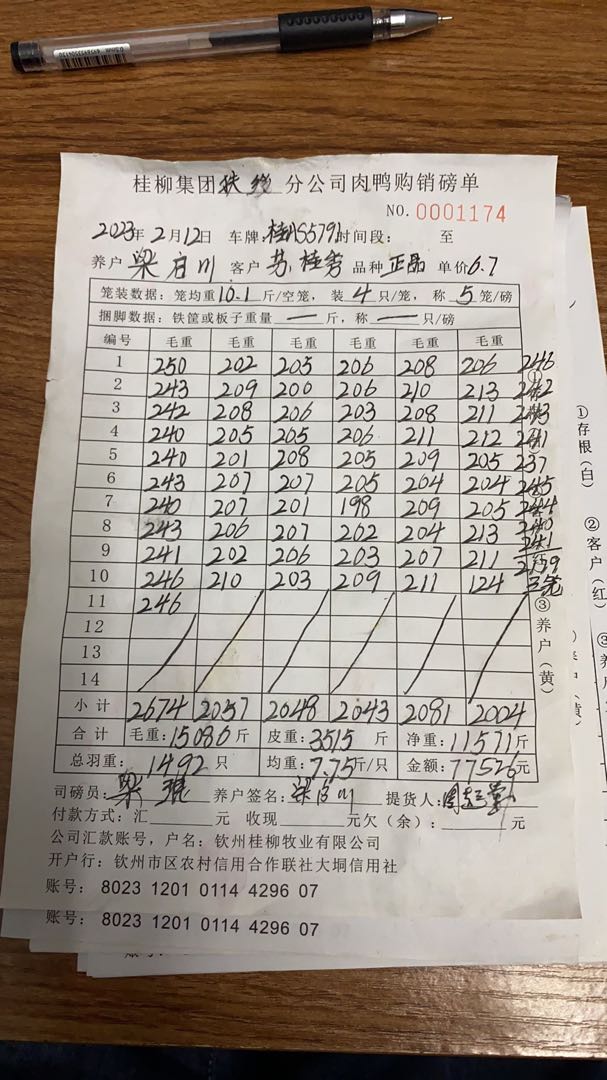 桂柳集团 分公司肉鸭购销磅单
NO. 0001174
2023年 2月12日 车牌: 时间段: 至
养户 梁 川 客户 苏桂 品种 正品 单价 6.7
笼装数据：笼均重 10.1 斤/空笼，装 4 只/笼，称 5 笼/磅
捆脚数据：铁筐或板子重量 — 斤，称 — 只/磅
编号 毛重 毛重 毛重 毛重 毛重 毛重
1 250 202 205 206 208 206 246
2 243 209 200 206 210 213 242
3 242 208 206 203 208 211 243
4 240 205 205 206 211 212 241
5 240 201 208 205 209 205 237
6 243 207 207 205 204 204 245
7 240 207 201 198 209 205 244
8 243 206 207 202 204 213 240
9 241 202 206 203 207 211 241
10 246 210 203 209 211 124 2179
11 246
12
13
14
小计 2674 2057 2048 2043 2081 2004
合计 毛重: 15086 斤 皮重: 3515 斤 净重: 11571 斤
总羽重: 1492 只 均重: 7.75 斤/只 金额: 77526 元
司磅员: 梁 养户签名: 梁 川 提货人: 周
付款方式: 汇 元 收现 元欠（余）: 元
公司汇款账号，户名：钦州桂柳牧业有限公司
开户行：钦州市区农村信用合作联社大垌信用社
账号: 8023 1201 0114 4296 07
账号: 8023 1201 0114 4296 07
①存根（白）
②客户（红）
③养户（黄）